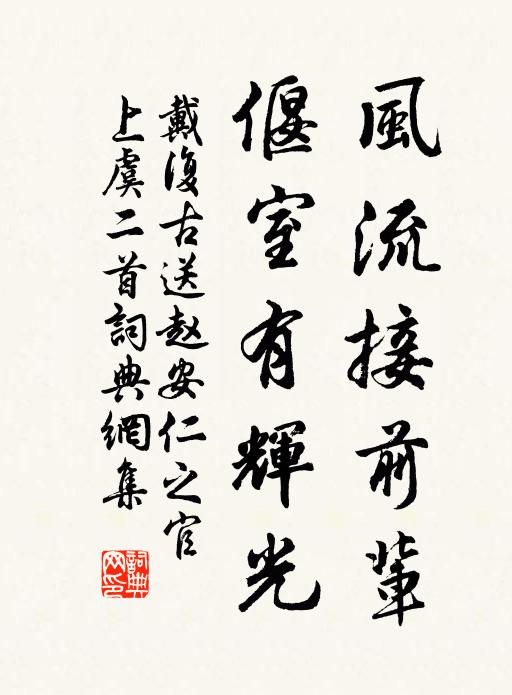 風流接前輩
偃室有輝光
戴復古送赵安仁之官
上虞二首詞典網集
詞典網印